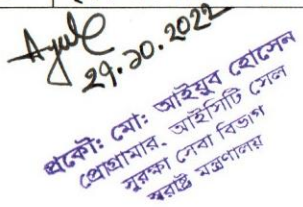 Ayub
29.10.2022
প্রকৌ: মো: আইয়ুব হোসেন
প্রোগ্রামার, আইসিটি সেল
সুরক্ষা সেবা বিভাগ
স্বরাষ্ট্র মন্ত্রণালয়